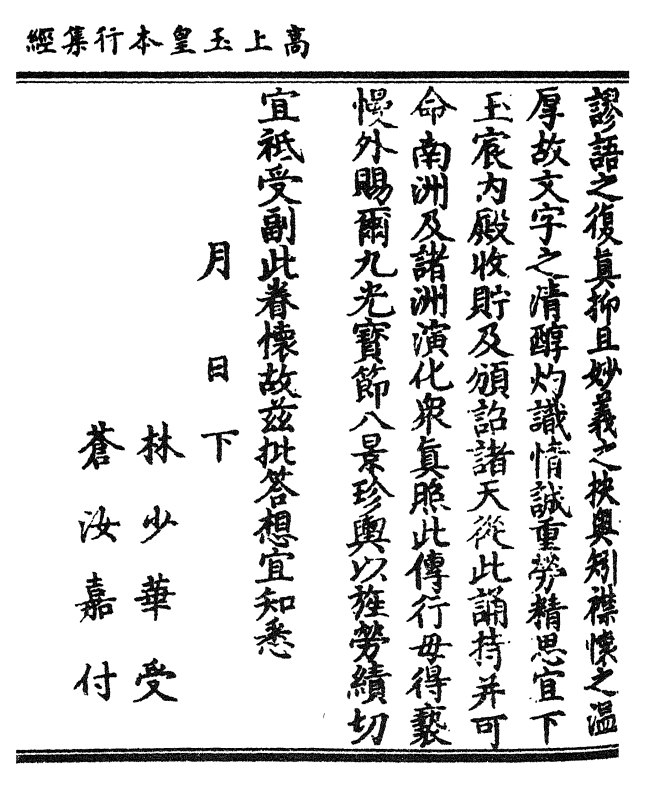 高上玉皇本行集經
謬語之復真抑且妙義之抉奥矧襟懷之溫
厚故文字之清醇灼識情誠重勞精思宜下
玉宸内殿收貯及頒詔諸天從此誦持并可
命南洲及諸洲演化衆真照此傳行毋得褻
慢外賜爾九光寳節八景珍輿以旌勞績切
宜祗受副此眷懷故兹批答想宜知悉
月日下
林少華受
蒼汝嘉付